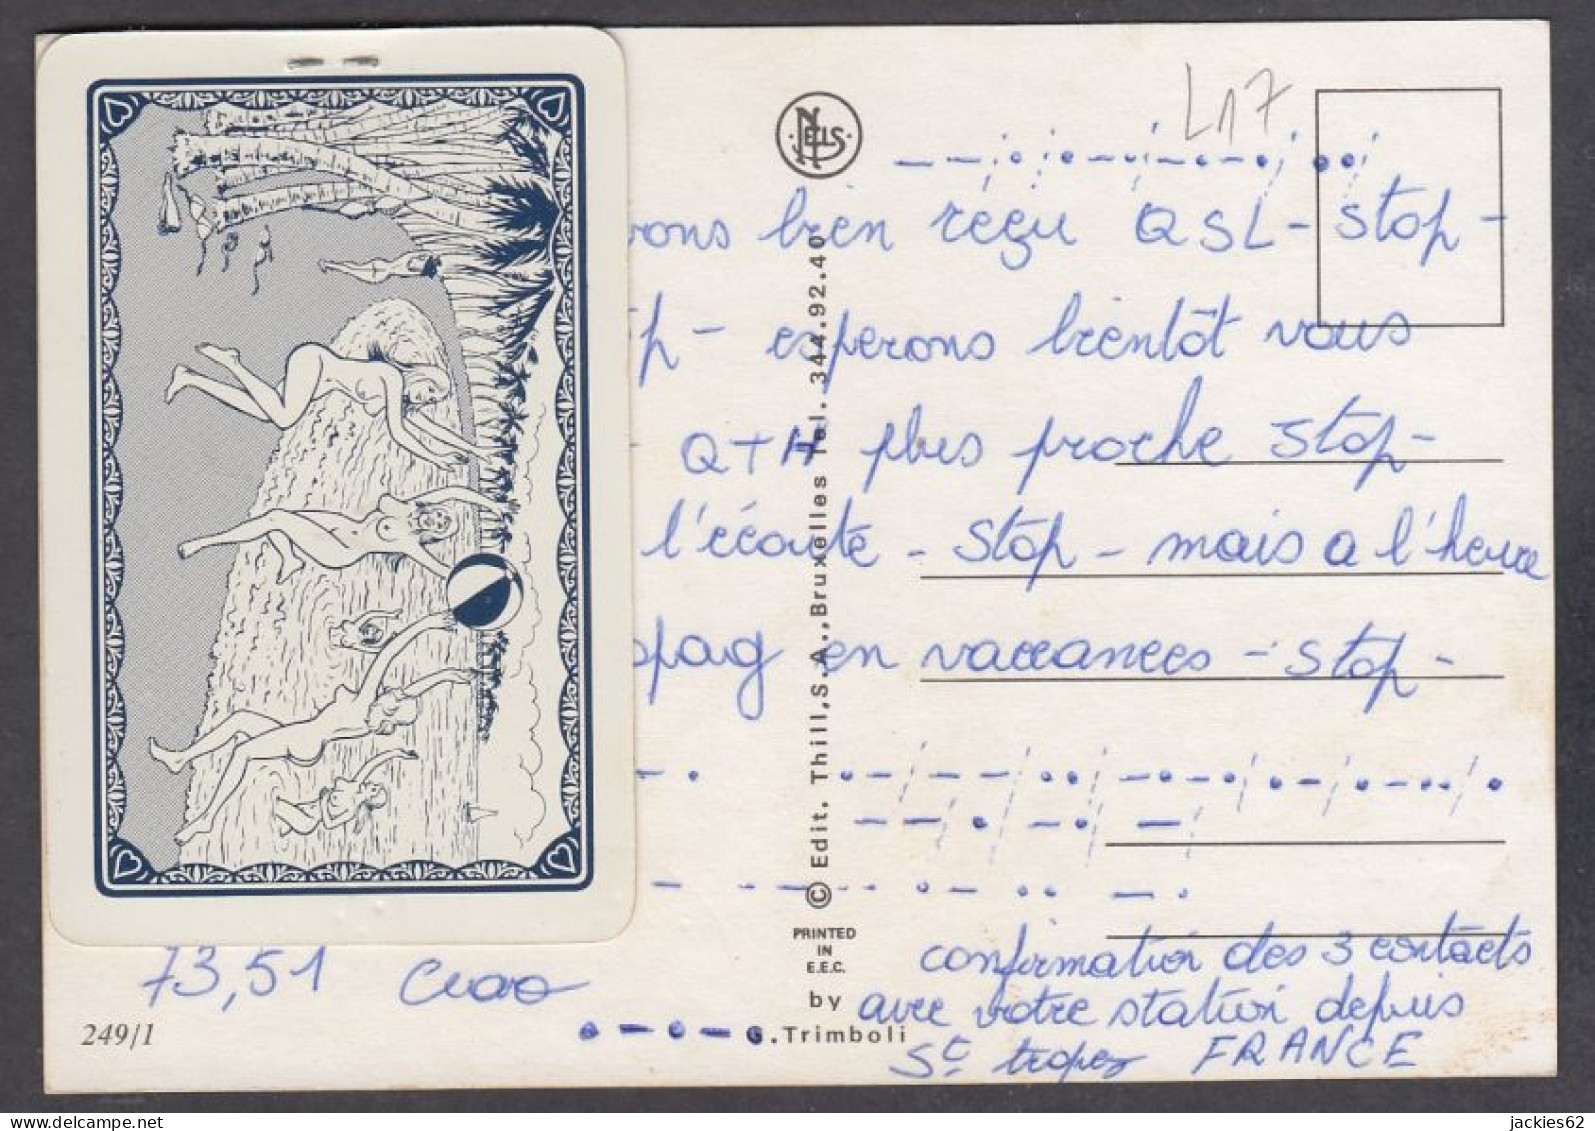 L17
NELS
— — / • / • — • • / — • — • / • • /
vons bien reçu QSL - Stop -
p - esperons bientôt vous
- QTH plus proche Stop -
l'écoute - Stop - mais a l'heure
pag en vaccances - Stop -
confirmation des 3 contacts
avec votre station depuis
St tropez FRANCE
73,51 Ciao
• — • — •
249/1
© Edit. Thill, S.A., Bruxelles Tel. 344.92.40
PRINTED
IN
E.E.C.
by
G. Trimboli
jackies62